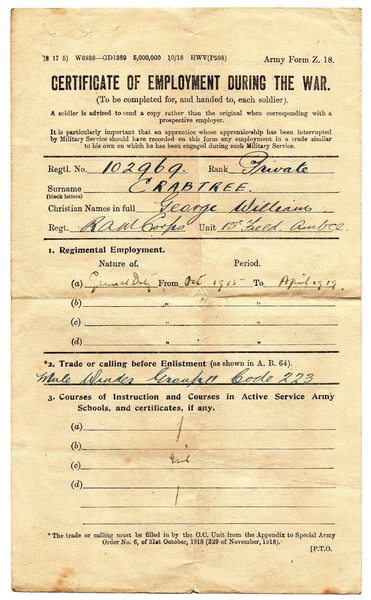 (8 17 5) W6938—GD1389 5,000,000 10/18 HWV(P598) Army Form Z. 18.
CERTIFICATE OF EMPLOYMENT DURING THE WAR.
(To be completed for, and handed to, each soldier).
A soldier is advised to send a copy rather than the original when corresponding with a
prospective employer.
It is particularly important that an apprentice whose apprenticeship has been interrupted
by Military Service should have recorded on this form any employment in a trade similar
to his own on which he has been engaged during such Military Service.
Regtl. No. 102969. Rank Private
Surname CRABTREE.
(block letters)
Christian Names in full George William
Regt. RAM Corps Unit Field. Ambce.
1. Regimental Employment.
Nature of. Period.
(a) General Duty From Oct 1915 To April 1919.
(b) " "
(c) " "
(d) " "
*2. Trade or calling before Enlistment (as shown in A. B. 64).
Code 223
3. Courses of Instruction and Courses in Active Service Army
Schools, and certificates, if any.
(a)
(b)
(c)
(d)
* The trade or calling must be filled in by the O.C. Unit from the Appendix to Special Army
Order No. 6, of 21st October, 1918 (329 of November, 1918).
[P.T.O.